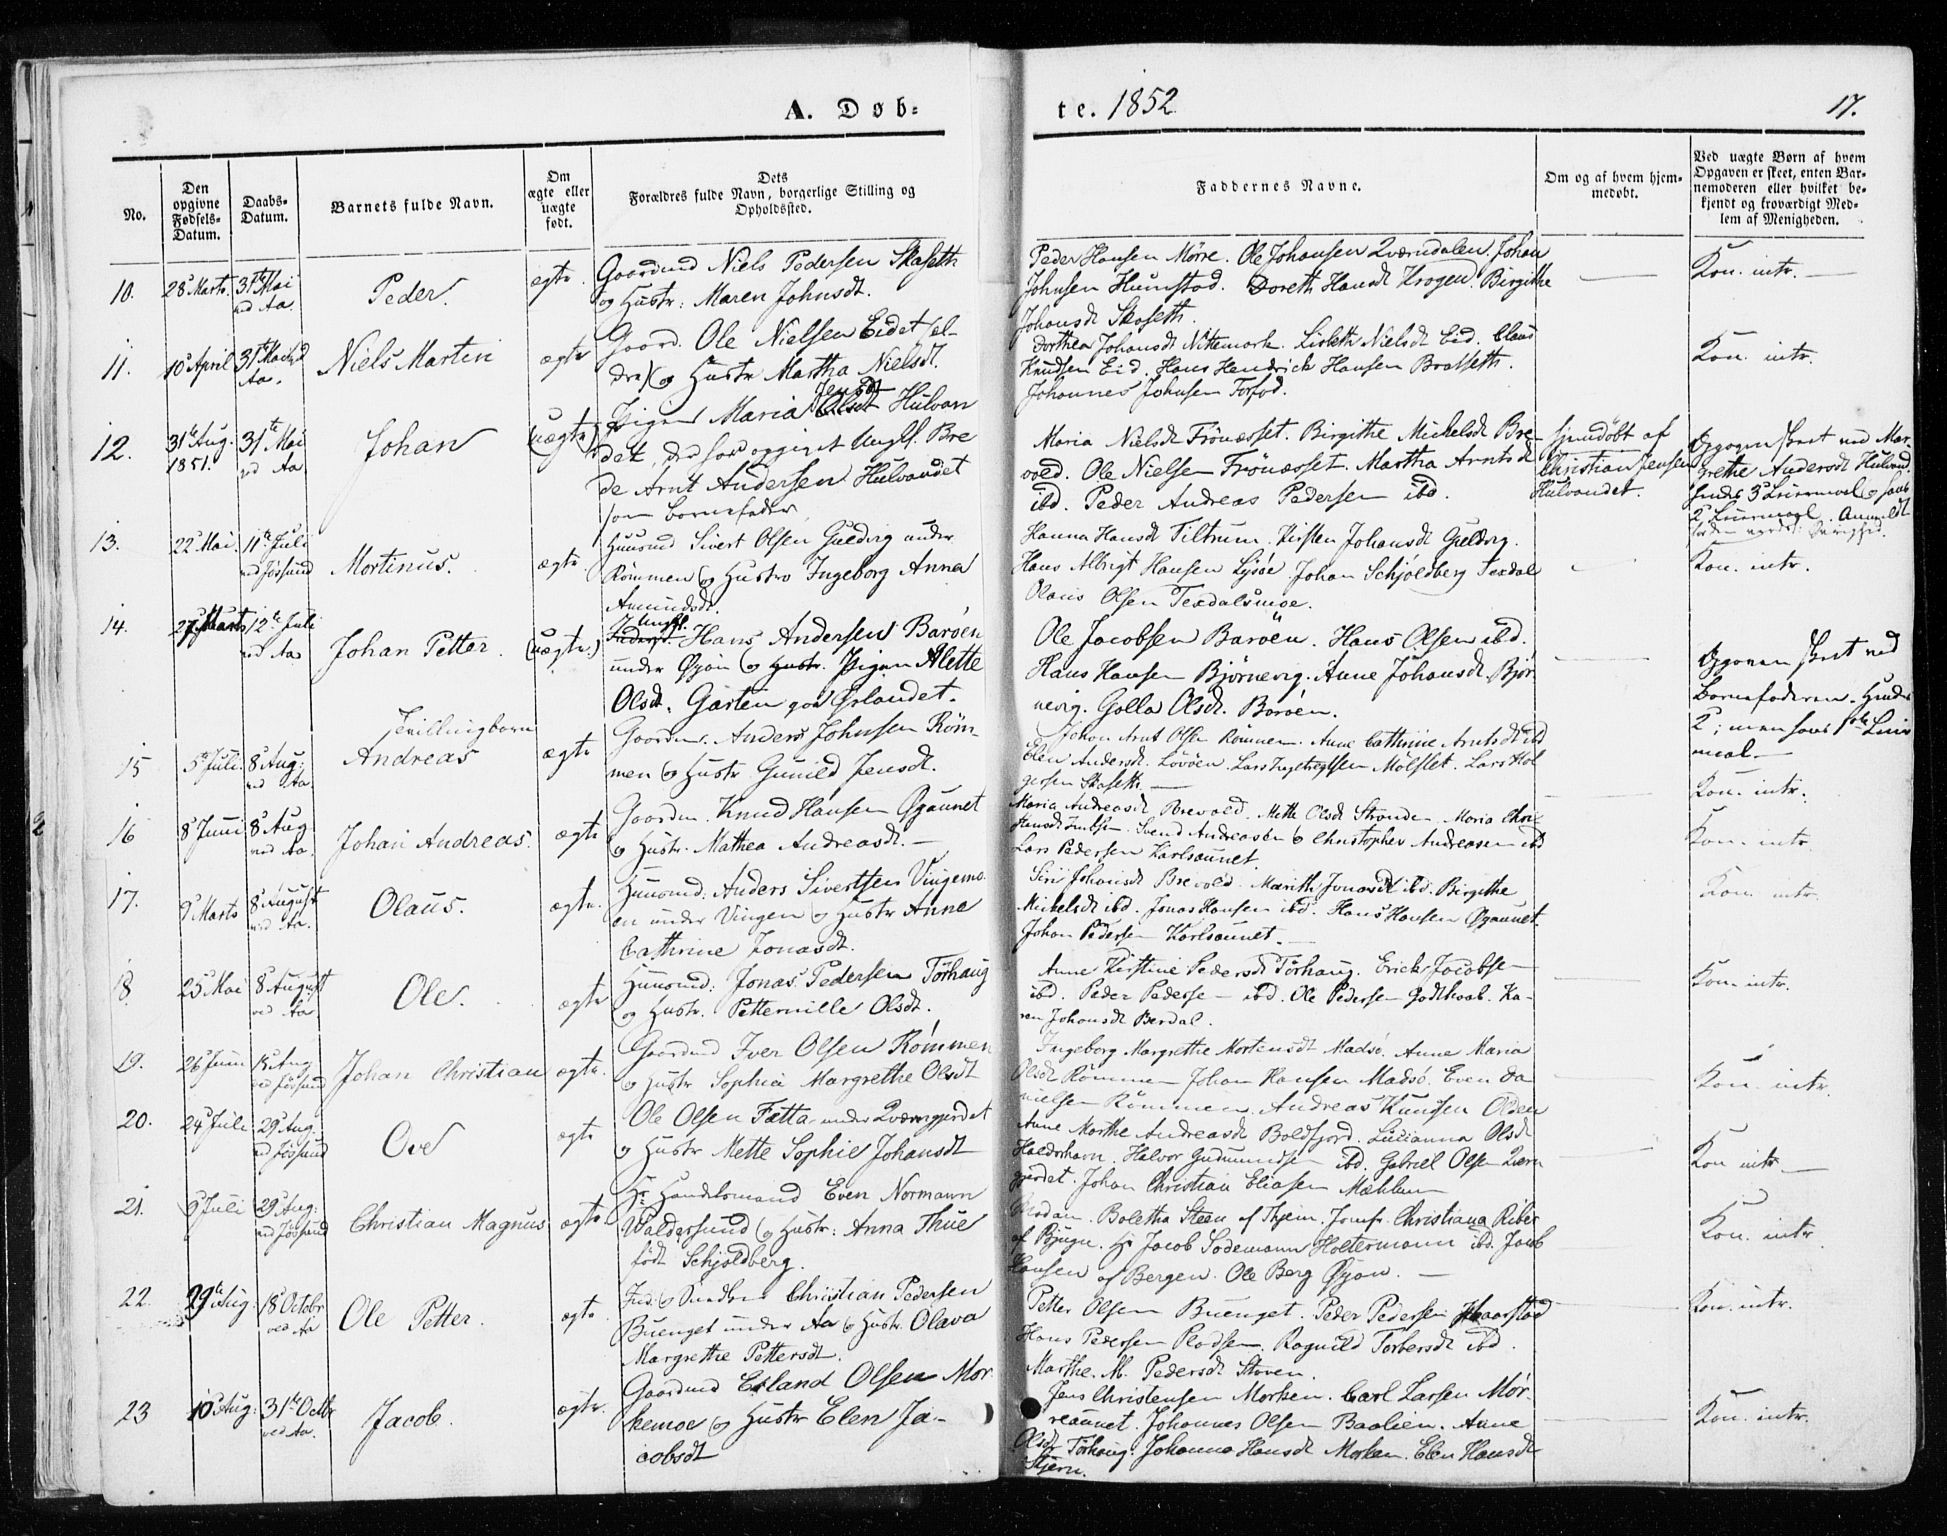 A. Døb=
te. 1852
17.
No.
Den opgivne Fødsels-Datum.
Daabs-Datum.
Barnets fulde Navn.
Om ægte eller uægte født.
Dets Forældres fulde Navn, borgerlige Stilling og Opholdssted.
Faddernes Navne.
Om og af hvem hjemmedøbt.
Ved uægte Børn af hvem Opgaven er skeet, enten Barnemoderen eller hvilket bekjendt og troværdigt Medlem af Menigheden.
10. 28 Marts. 31te Mai ved Aa. Peder. ægte.
Gaardmd Niels Pedersen Skaseth
og Hustr: Maren Johnsdt.
Peder Hansen Mörre. Ole Johansen Qværndalen. Johan
Johnsen Humstad. Doreth Hansdt Krogen. Birgithe
Johansdt Skaseth.
Kon. intr.
11. 10 April 31te Mai ved Aa. Niels Martin ægte
Gaard. Ole Nielsen Eidet (el-
dre) og Hustr Martha Nielsdt.
Dorthea Johansdt Nittemark. Lisbeth Nielsdt Eid. Claus
Knudsen Eid. Hans Hendrick Hansen Bratseth.
Johannes Johnsen Forfod.
Kon. intr.
12. 31te Aug. 1851. 31te Mai ved Aa Johan (uægte)
Pigen Maria Jensdt Hulvan
det, der har opgivet Ungk. Bre
de Arnt Andersen Hulvandet
som barnefader
Maria Nielsdt Frönæsset. Birgithe Mickelsdt Bre-
vold. Ole Nielsen Frönæsset. Martha Arntsdt
ibd. Peder Andreas Pedersen ibd.
hjemdöbt af
Christian Jensen
Hulvandet.
Opgaven skeet ved Mar-
grethe Andersdt Hulvand.
hendes 3 Leiermaal og hans
2 Leiermaal. Anmeldt
13. 22 Mai. 11te Juli ved Jössund Mortinus. ægte
Huusmd Sivert Olsen Guldvig under
Römmen og Hustro Ingeborg Anna
Amundsdt.
Hanna Hansdt Tiltrum. Kirsten Johansdt Guldvig.
Hans Albrigt Hansen Lysöe. Johan Schjöldberg Texdal
Olaus Olsen Texdalsmoe.
Kon. intr.
14. 27 Marts 12te Juli ved Aa Johan Petter. (uægte.)
Ungk. Hans Andersen Baröen
under Öyan og Pigen Alette
Olsdt. Garten paa Ørlandet.
Ole Jacobsen Baröen. Hans Olsen ibd.
Hans Hansen Björnevig. Anne Johansdt Björ
nevig. Golla Olsdt. Baröen.
Opgaven skeet ved
Barnefaderen. Hendes
2; men hans 1ste Leier
maal.
Tvillingbarn
15 5 Juli. 8 Aug: ved Aa. Andreas ægte
Gaardm. Anders Johnsen Röm-
men og Hustr Gunild Jensdt.
Johan Arnt Olsen Rommen. Anne Cathrine Arntsdt ibd
Elen Andersdt. Lövöen. Lars Ingebregtsen Molslet. Lars Hol
gersen Skaseth.
Kon. intr.
16 8 Juni 8 Aug ved Aa. Johan Andreas. ægte
Gaardm. Knud Hansen Øgaunet
og Hustr. Mathea Andreasdt.
Maria Andreasdt Brevold. Mette Olsdt Stranden. Maria Chri-
Svend Andreasen og Christopher Andreasen ibd
Lars Pedersen Karlsaunet.
Kon. intr.
17. 9 Marts 8 August ved Aa. Olaus. ægte.
Huusmd: Anders Sivertsen Vingemo
en under Vingen og Hustr Anne
Cathrine Jonasdt.
Siri Johansdt Brevold. Marith Jonasdt ibd. Birgithe
Mickelsdt ibd. Jonas Hansen ibd. Hans Hansen Øgaunet.
Johan Pedersen Karlsaunet.
Kon. intr.
18 25 Mai 8 August ved Aa Ole. ægte
Huusmd: Jonas Pedersen Törhaug
og Hustr. Petternille Olsdt.
Anne Kirstine Pedersdt Törhaug. Erick Jacobsen
ibd. Peder Pedersen ibd. Ole Pedersen Godthaab. Ka-
ren Johansdt Berdal.
Kon. intr.
19. 26 Juni 15 Aug ved Jössund Johan Christian ægte.
Gaardmd Iver Olsen Römmen
og Hustr Sophia Margrethe Olsdt
Ingeborg Margrethe Mortensdt Madsö. Anne Maria
Olsdt Rommen Johan Hansen Madsö. Even Da
nielsen Rommen. Andreas Knudsen Olden
Kon. intr.
20. 24 Juli 29 Aug. ved Jössund Ove ægte
Ole Olsen Fætta under Qværngjerdet
og Hustr Mette Sophie Johansdt
Anne Marthe Andreasdt Boldfjord. Lucianna Olsdt
Halvor Gudmundsen ibd. Gabriel Olsen Qværn
gjerdet. Johan Christian Eliasen Mæhlum
Kon intr.
21. 6 Juli 29 Aug: ved Jössund Christian Magnus ægte.
Hr Handelsmand Even Normann
Waldersund og Hustr: Anna Thue
født Schjöldberg.
Madam. Boletha Steen af Thjem. Jomfr. Christiana Riber
af Bjugn. Hr Jacob Sodemann Holtermann ibd. Jacob
Hansen af Bergen. Ole Berg Öyan.
Kon. intr
22. 29te Aug: 18 Octobr ved Aa Ole Petter. ægte.
Christian Pedersen
Buenget under Aa og Hustr. Olava
Margrethe Pettersdt.
Petter Olsen Buenget. Peder Pedersen Haarstad
Hans Pedersen Pladsen. Ragnild Torbersdt ibd.
Marthe M. Pedersdt Stoven.
Kon. intr.
23 10 Aug: 31te Octbr ved Aa. Jacob. ægte.
Gaardmd Erland Olsen Mor
kemoe og Hustr Elen Ja-
cobsdt
Jens Christensen Morken. Carl Larsen Mör-
reaunet. Johannes Olsen Baalien. Anne
Olsdt Törhaug. Johanna Hansdt Morken. Elen Hansdt
Stjern.
Kon. intr.